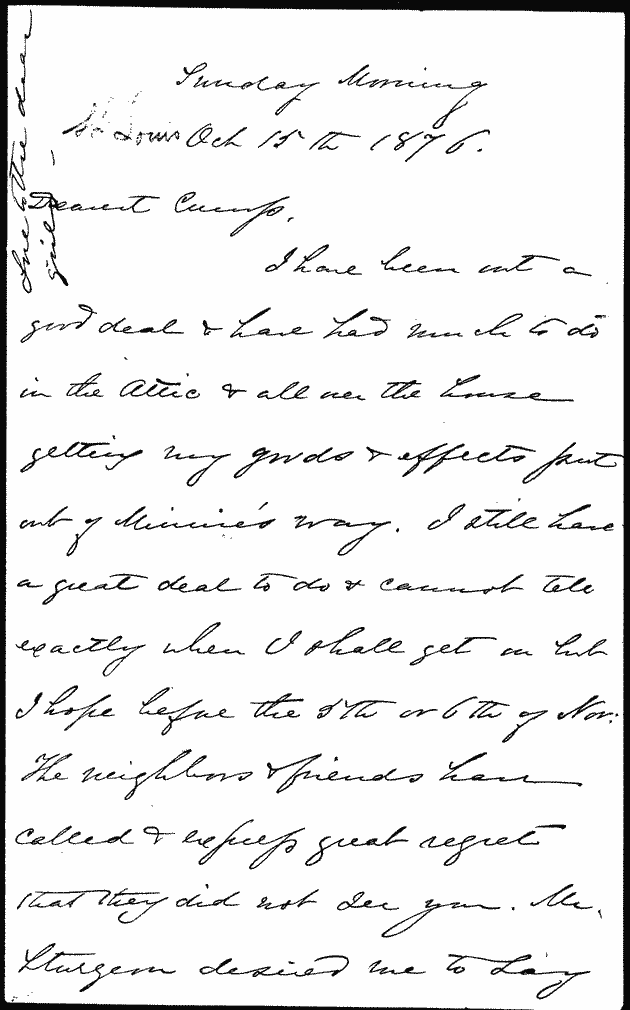 Sunday Morning
St Louis Oct 15th 1876.
Dearest Cump,
I have been out a
good deal & have had much to do
in the Attic & all over the house
getting my goods & effects put
out of Minnie's way. I still have
a great deal to do & cannot tell
exactly when I shall get on but
I hope before the 5th or 6th of Nov:
The neighbors & friends have
called & express great regret
that they did not see you. Mr.
Sturgeon desired me to say
Love to the dear
girls